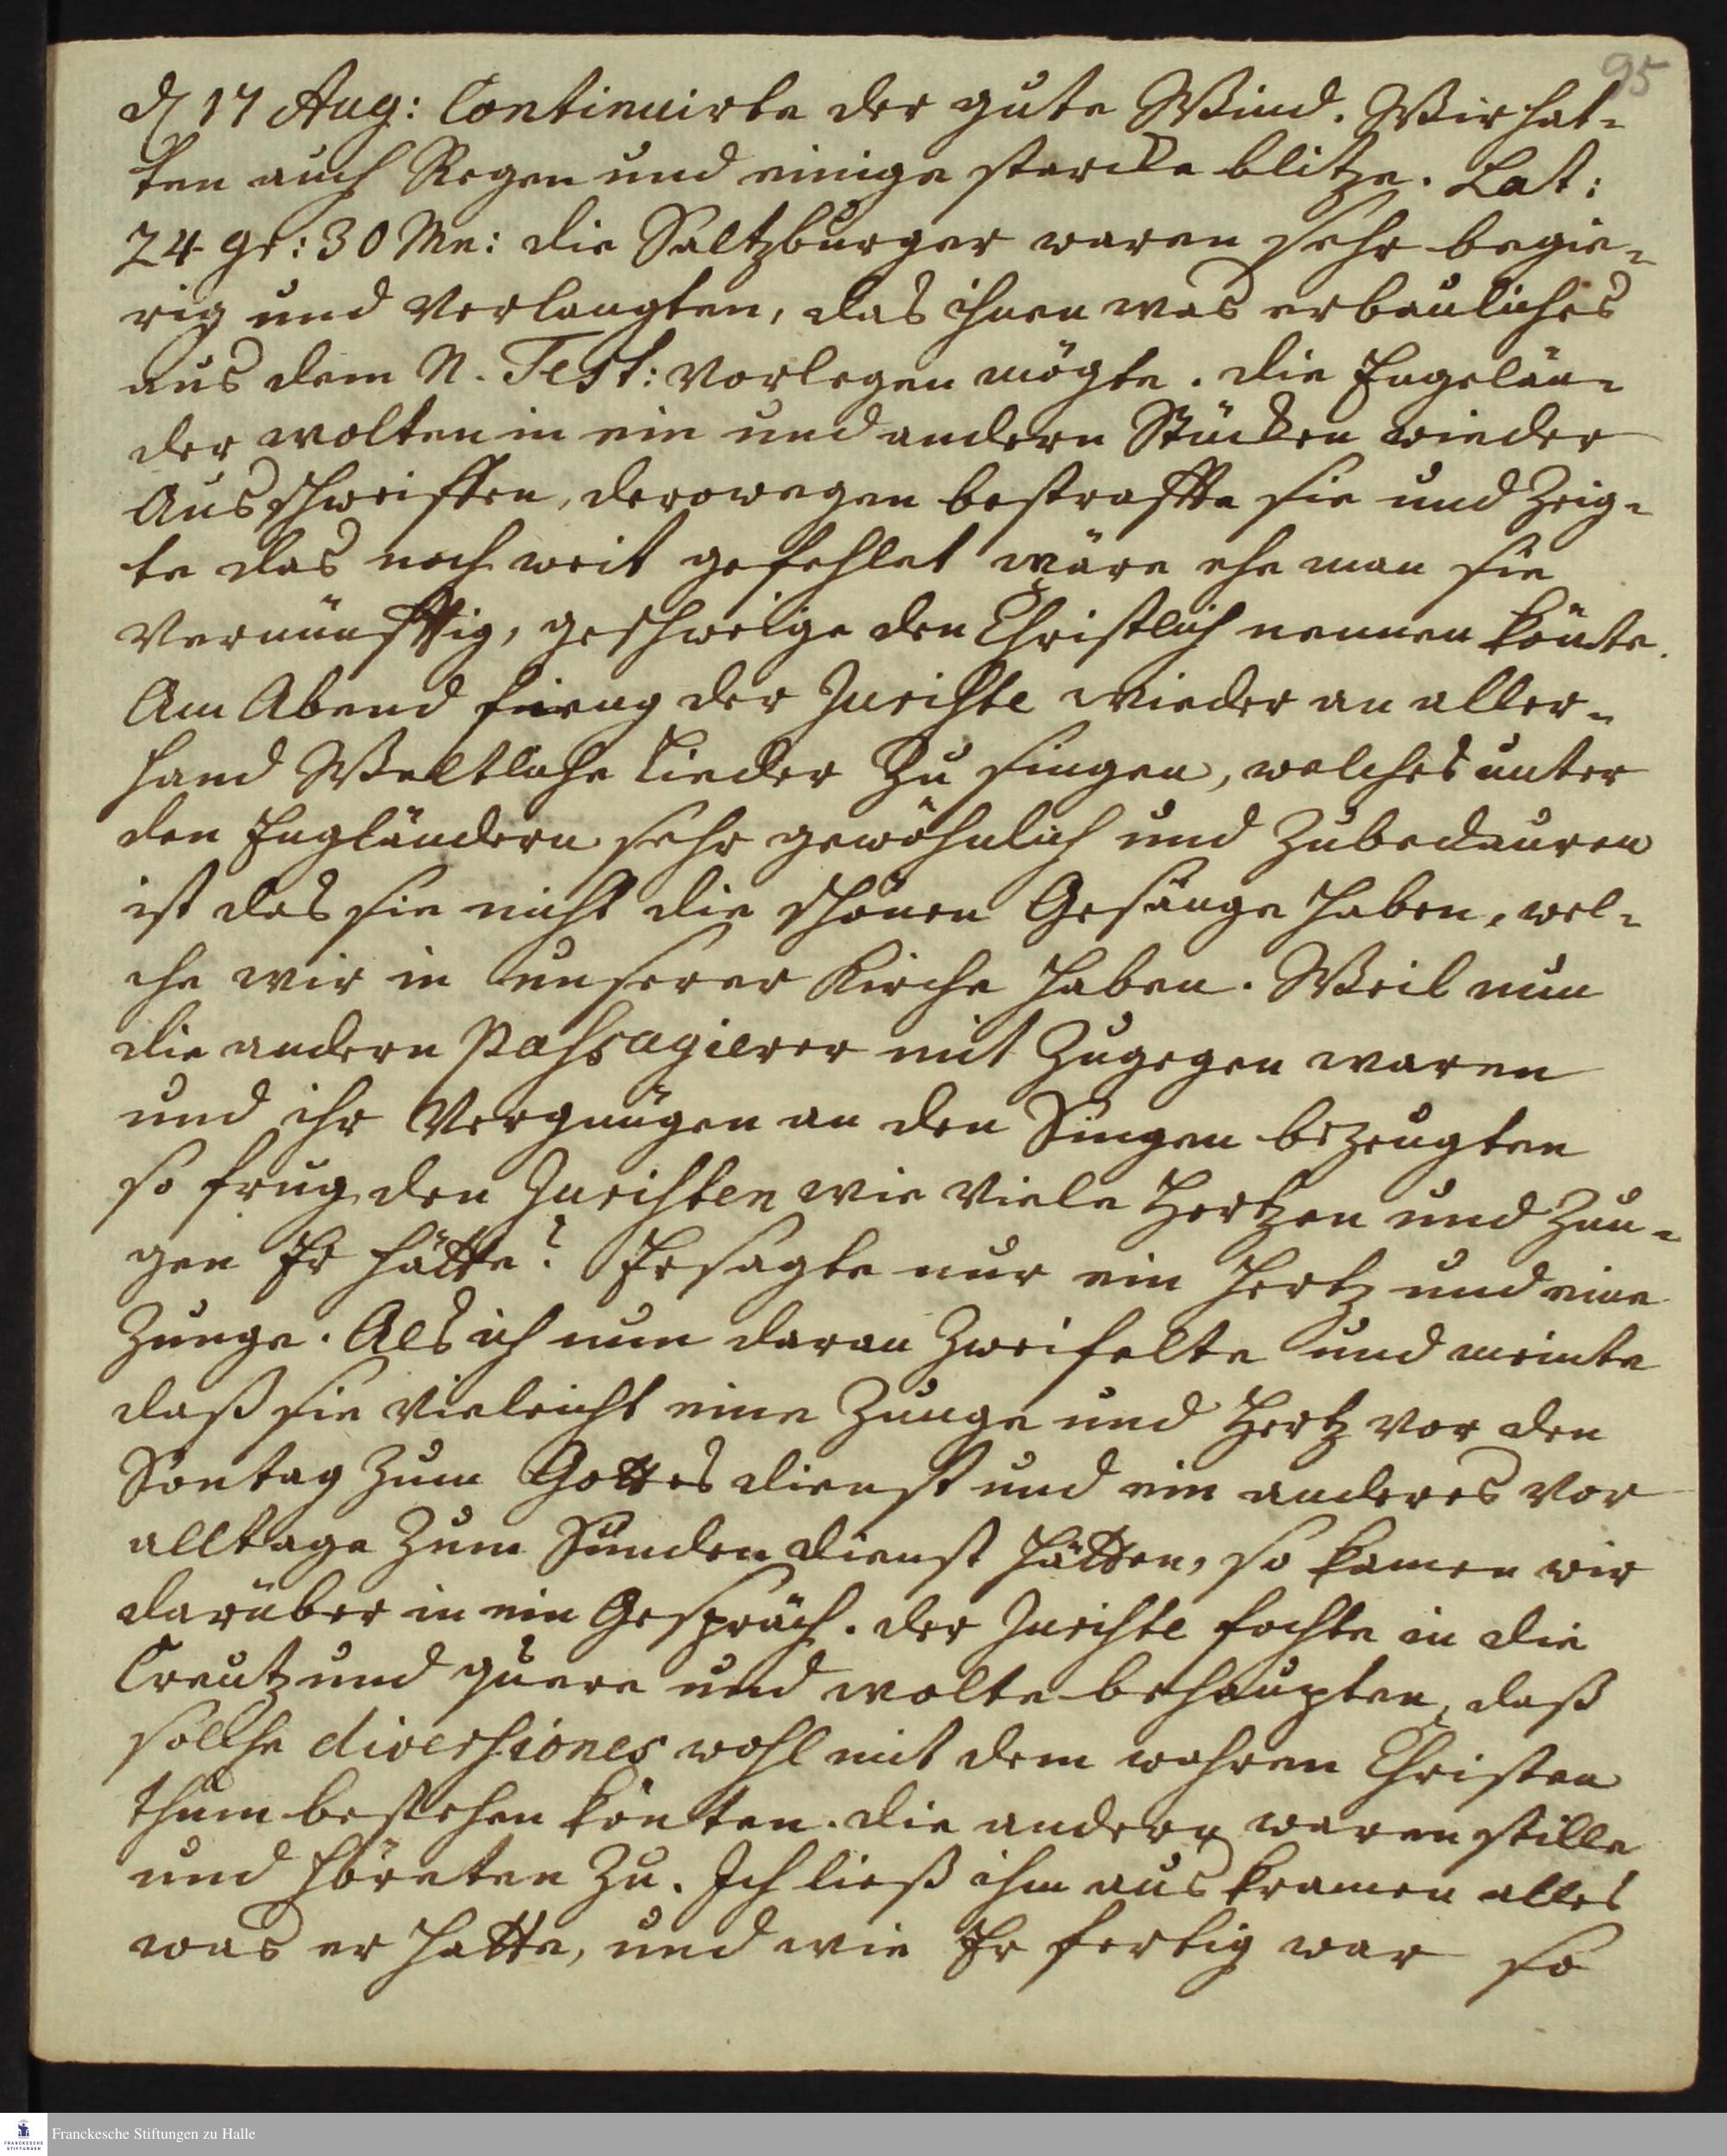 95
d 17 Aug: Continuirte der gute Wind. Wir hat-
ten auch Regen und einige starcke blitze. Lat:
24 gr: 30 Mn: die Saltzburger waren sehr begie-
rig und verlangten, das ihnen was erbauliches
aus dem N. Test: vorlegen mögte. die Engelän-
der wolten in ein und andern Stücken wieder
Ausschweiffen, derowegen bestraffte sie und zeig-
te das noch weit gefehlet wäre ehe man sie
vernünfftig, geschweige den Christlich nennen könte.
Am Abend fieng der Juriste wieder an aller-
hand Weltliche Lieder zu singen, welches unter
den Engländern sehr gewöhnlich und zubedauren
ist das sie nicht die schönen Gesänge haben, wel-
che wir in unserer Kirche haben. Weil nun
die andern Passagierer mit zugegen waren
und ihr Vergnügen an den Singen bezeugten
so frug den Juristen wie viele Hertzen und Zun-
gen Er hätte? Er sagte nur ein Hertz und eine
Zunge. Als ich nun daran zweifelte und meinte
daß sie vieleicht eine Zunge und Hertz vor den
Sontag zum Gottesdienst und ein anderes vor
alltage zum Sünden dienst hätten, so kamen wir
darüber in ein Gespräch. der Juriste fochte in die
Creutz und quere und wolte behaupten, daß
solche diversiones wohl mit dem wahren Christen
thum bestehen könten. die andern waren stille
und höreten zu. Ich ließ ihm aus kramen alles
was er hatte, und wie Er fertig war so
Franckesche Stiftungen zu Halle
FRANCKESCHE
STIFTUNGEN